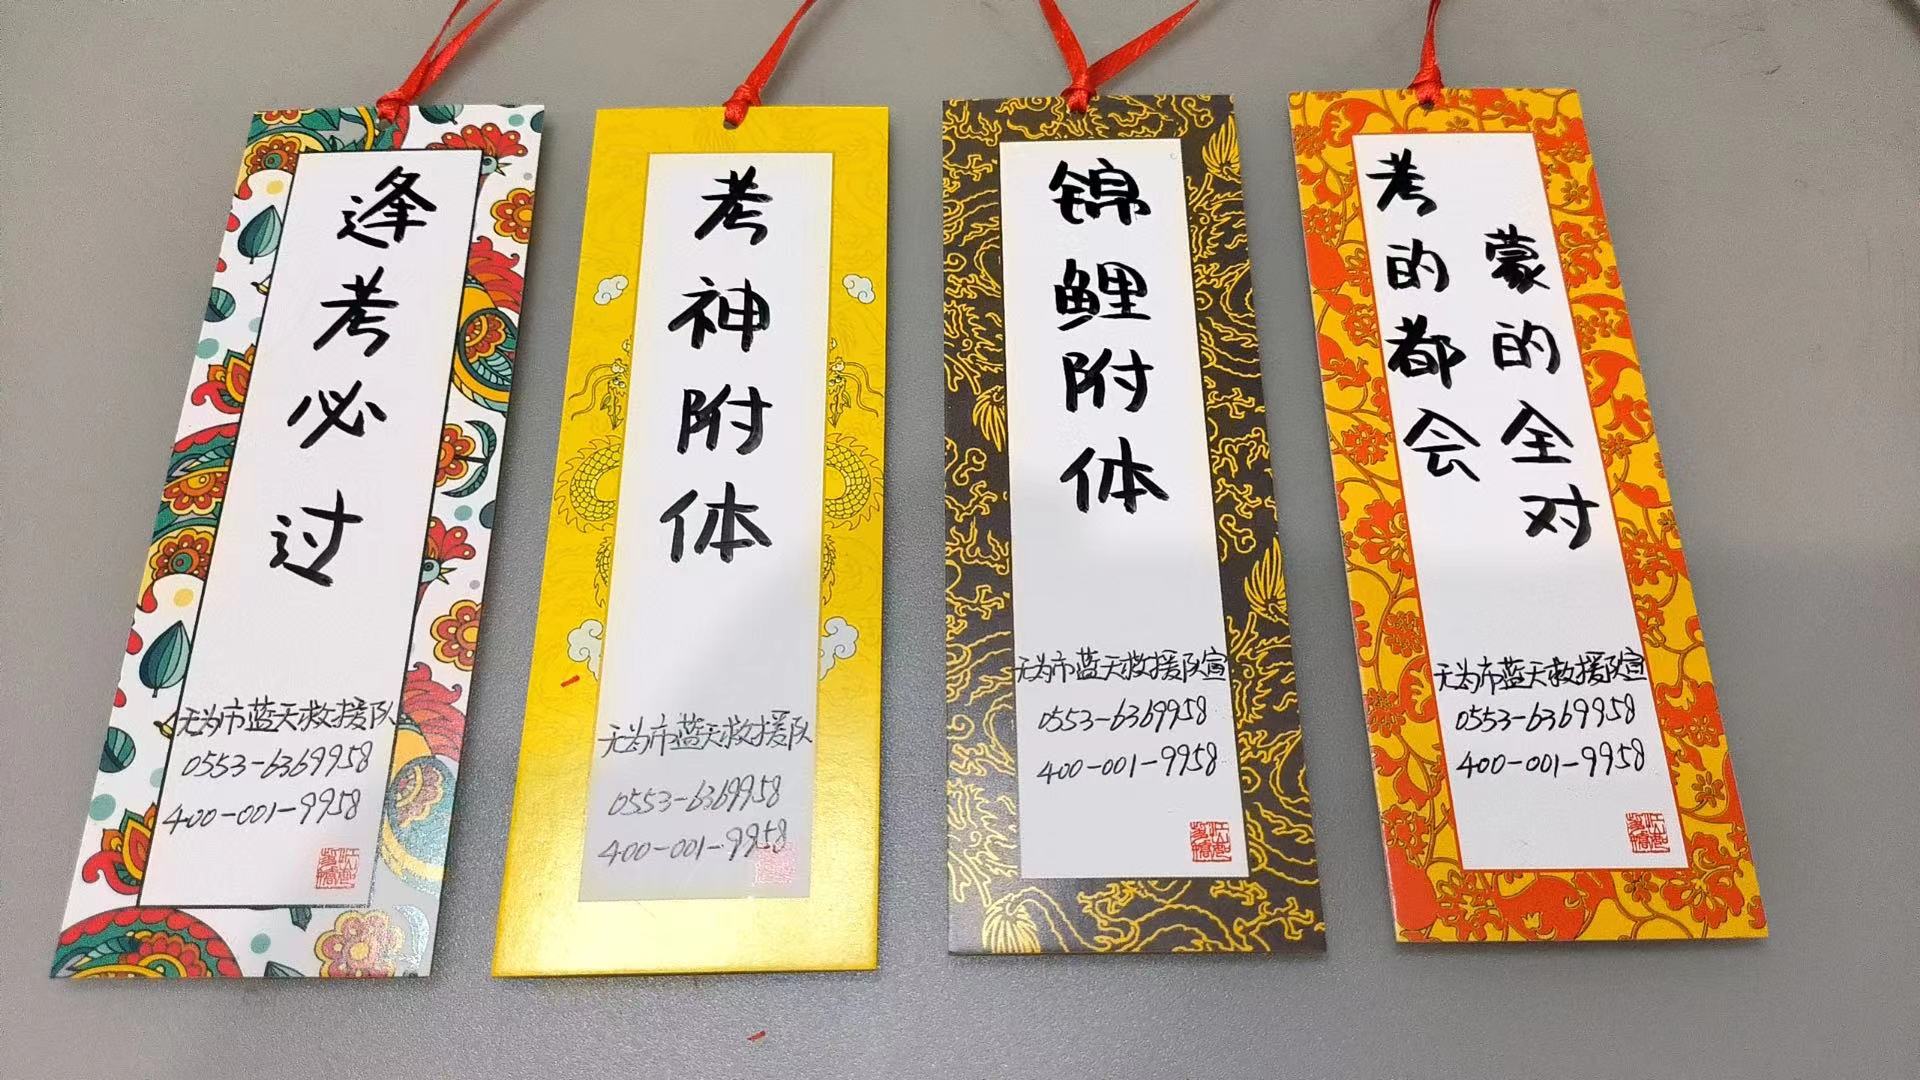 逢考必过
无为市蓝天救援队
0553-6369958
400-001-9958
考神附体
无为市蓝天救援队
0553-6369958
400-001-9958
锦鲤附体
无为市蓝天救援队宣
0553-6369958
400-001-9958
考的都会
蒙的全对
无为市蓝天救援队宣
0553-6369958
400-001-9958